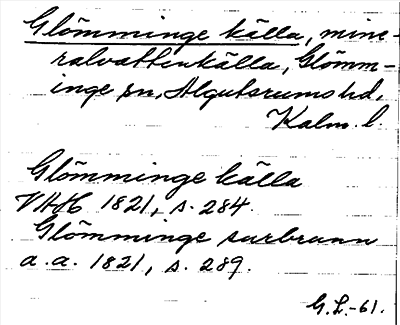 Glömminge källa, mine-
ralvattenkälla, Glömm-
inge sn, Algutsrums hd,
Kalm. l.
Glömminge källa
VAH 1821, s. 284.
Glömminge surbrunn
a.a. 1821, s. 289.
G.L.-61.